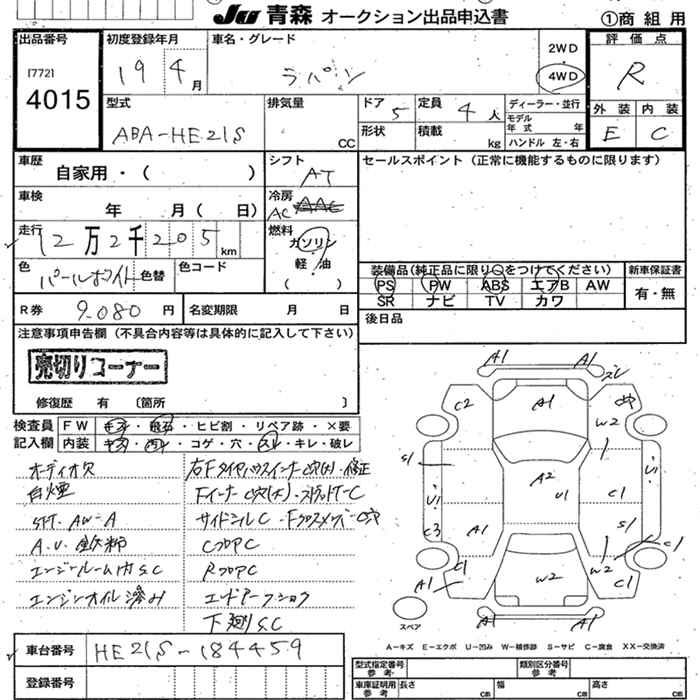 JU 青森 オークション出品申込書 ①商組用
出品番号
[772]
4015
初度登録年月
19 4月
車名・グレード
ラパン
2WD
4WD
評価点
R
外装 内装
E C
型式
ABA-HE21S
排気量
CC
ドア 5
定員 4人
形状
積載 kg
ディーラー・並行
モデル年式 年
ハンドル 左・右
車歴
自家用・( )
シフト
AT
セールスポイント (正常に機能するものに限ります)
車検
年 月( 日)
冷房
AC AAC
走行
12万2千205km
燃料
ガソリン
軽・油
( )
色
パールホワイト
色替
色コード
装備品(純正品に限り○をつけてください)
PS PW ABS エアB AW
SR ナビ TV カワ
新車保証書
有・無
R券 9,080円
名変期限 月 日
後日品
注意事項申告欄 (不具合内容等は具体的に記入して下さい)
売切りコーナー
修復歴 有 〔箇所 〕
検査員記入欄
FW キズ・飛石・ヒビ割・リペア跡・×要
内装 キズ・凹み・コゲ・穴・スレ・キレ・破レ
オーディオ欠
白煙
SFT. AW-A
エンジンルーム内S.C
サイドシルC
CフロアC
RフロアC
下廻りS.C
車台番号 HE21S-184459
登録番号
A1 A1
C2 A1 W2
S1 A2 U1 U1 U1
C3 C1 S1
A1 C1
A1 C1 W2 W2 C1
A1 A1
スペア
A-キズ E-エクボ U-凹み W-補修跡 S-サビ C-腐食 XX-交換済
型式指定番号 参考
類別区分番号 参考
車庫証明用 参考
長さ cm 幅 cm 高さ cm